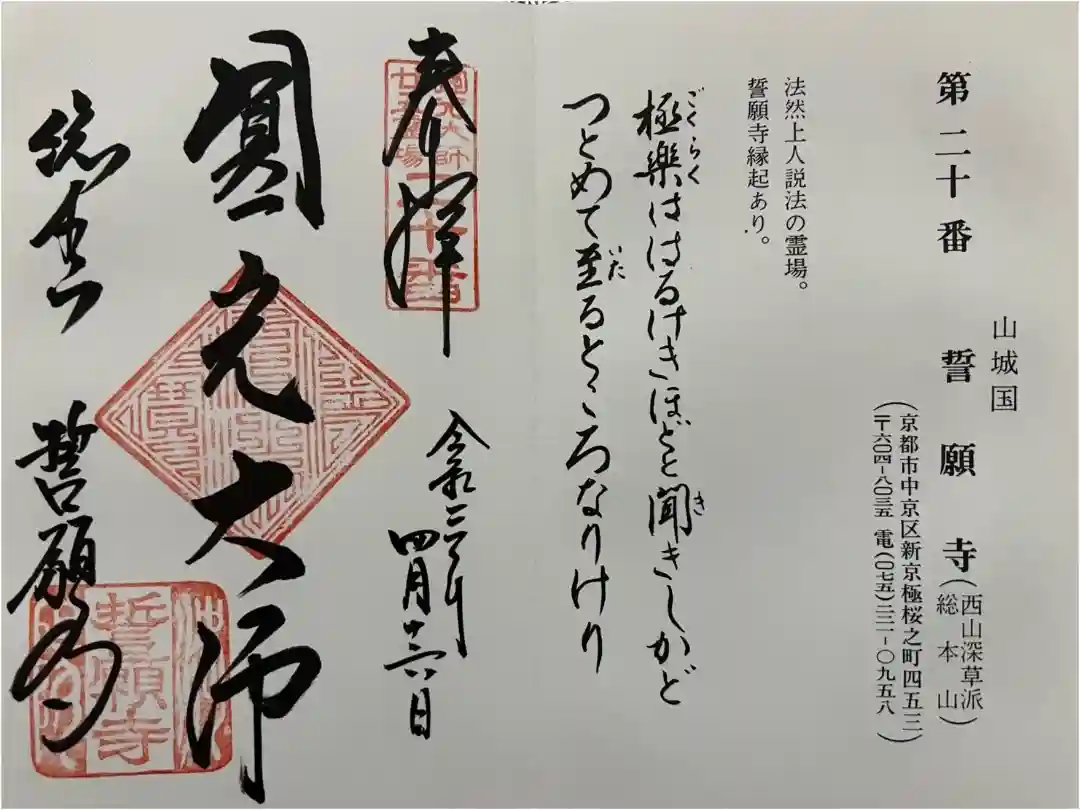 第二十番
山城国
誓願寺(西山深草派総本山)
(京都市中京区新京極桜之町四五三
〒六〇四-八〇三五 電(〇七五)二二一-〇九五八)
法然上人説法の霊場。
誓願寺縁起あり。
極楽ははるけきほどと聞きしかど
ごくらく
き
つとめて至るところなりけり
いた
奉拝
圓光大師
廿五霊場
二十番
四月十六日
圓光大師
総本山
誓願寺
誓願寺